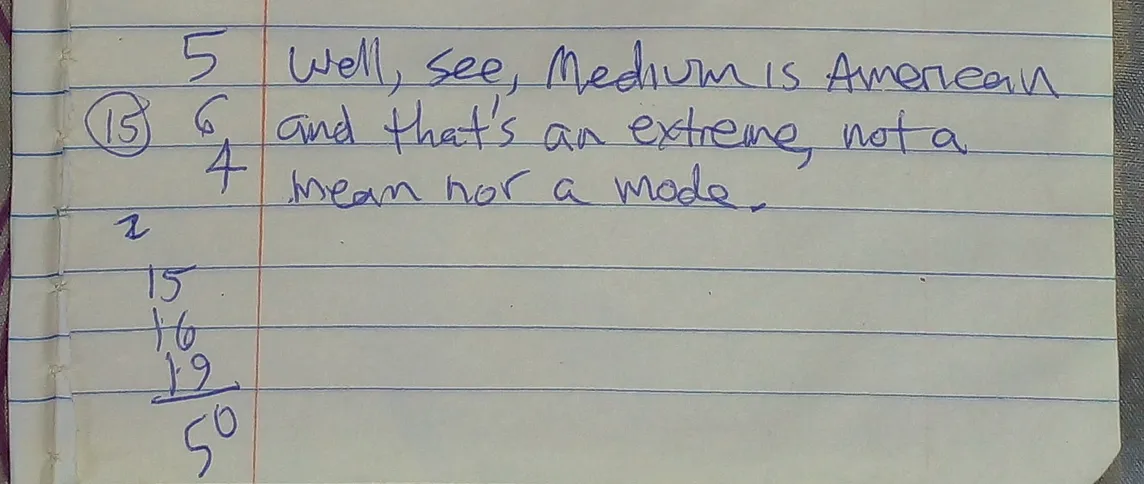 5 Well, see, Medium is American
15 6 and that's an extreme, not a
4 mean nor a mode.
2
15
16
19
50